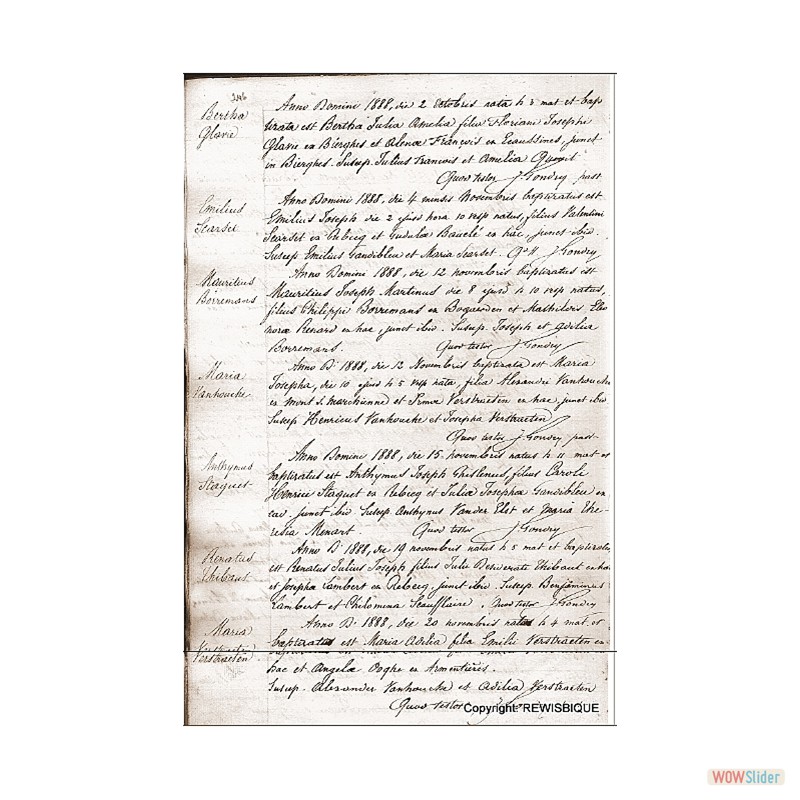 246
Bertha
Glavie
Anno Domini 1888, die 2 octobris nata h 3 mat et bap
tizata est Bertha Julia Amelia filia Floriani Josephi
Glavie ex Bierghes et Alenæ François ex Ecaussines, junct
in Bierghes. Suscep. Julius Francois et Amelia
Quod testor J. Gondry past
Emilius
Scarset
Anno Domini 1888, die 4 mensis Novembris baptizatus est
Emilius Joseph die 2 ejusd hora 10 vesp natus, filius Valentini
Scarset ex Rebecq et Gudulæ Bauclé ex hac, junct ibid.
Suscep Emilius Gandibleu et Maria Scarset. J Gondry
Mauritius
Borremans
Anno Domini 1888, die 12 novembris baptizatus est
Mauritius Joseph Martinus die 8 ejusd h 10 vesp natus,
filius Philippi Borremans ex Bogaerden et Mathildis, Eleo
noræ Renard ex hac, junct ibid. Suscep. Joseph et Adilia
Borremans. Quod testor J. Gondry
Maria
Vanhoucke
Anno D. 1888, die 12 Novembris baptizata est Maria
Josepha, die 10 ejusd h 5 vesp nata, filia Alexandri Vanhoucke
ex Mont S. Marchienne et Irma Verstraeten ex hac, junct ibid
Suscep Henricus Vanhoucke et Josepha Verstraeten
Quod testor J. Gondry past.
Anthymus
Staquet
Anno Domini 1888, die 15 novembris natus h 11 mat et
baptizatus est Anthymus Joseph Ghislenus, filius Caroli
Henrici Staquet ex Rebecq et Julia Josepha Gandibleu ex
ead. junct ibid Suscep. Anthymus Vander Elst et Maria The-
resia Menart. Quod testor J Gondry
Renatus
Thibaut
Anno D. 1888, die 19 novembris natus h 5 mat et baptizatus
est Renatus Julius Joseph filius Julii Desiderate Thibaut ex hac
et Josepha Lambert ex Rebecq, junct ibid. Suscep. Benjaminus
Lambert et Philomena Staufflaire. Quod testor J Gondry
Maria
Verstraeten
Anno D. 1888, die 20 novembris nata h 4 mat et
baptizata est Maria Adilia filia Emilii Verstraeten ex
hac et Angela Ooghe ex Armentières.
Suscep. Alexander Vanhoucke et Adilia Verstraeten
Quod testor
Copyright: REWISBIQUE
WOWSlider